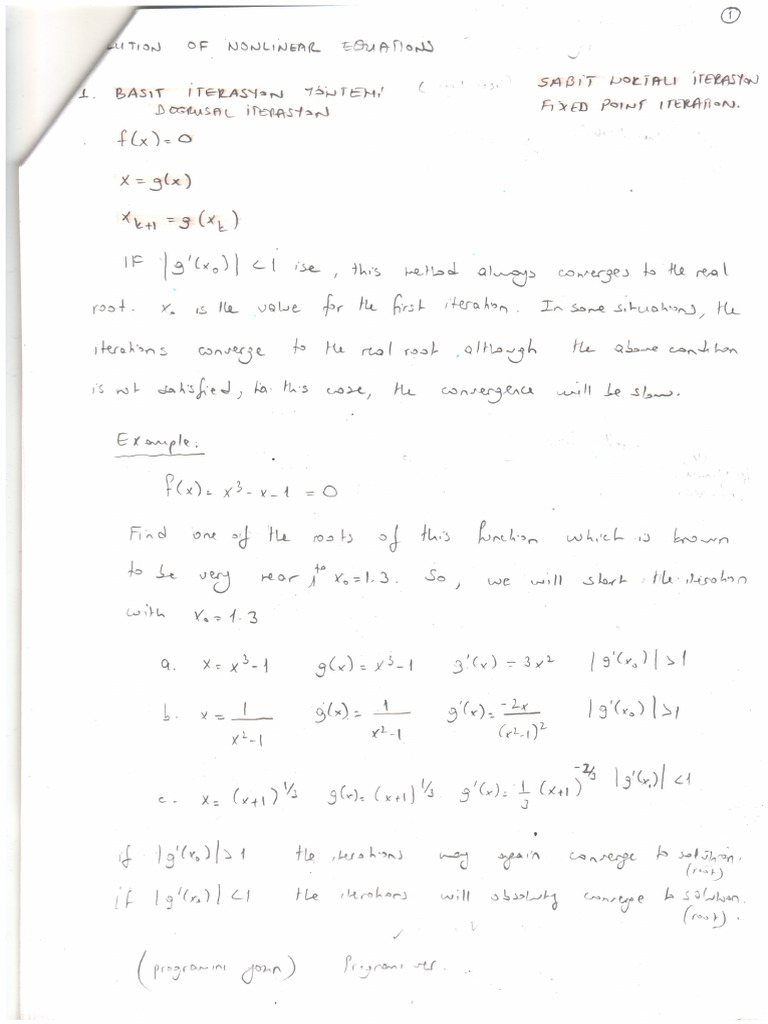 ①
LUTION OF NONLINEAR EQUATIONS
1. BASIT ITERASYON YÖNTEMI SABIT NOKTALI ITERASYON
DOGRUSAL ITERASYON FIXED POINT ITERATION.
f(x)=0
x = g(x)
x_{k+1} = g(x_k)
IF |g'(x₀)| < 1 ise, this method always converges to the real
root. x₀ is the value for the first iteration. In some situations, the
iterations converge to the real root although the above condition
is not satisfied, in this case, the convergence will be slow.
Example:
f(x) = x³ - x - 1 = 0
Find one of the roots of this function which is known
to be very near to x₀ = 1.3. So, we will start the iteration
with x₀ = 1.3
a. x = x³-1 g(x) = x³-1 g'(x) = 3x² |g'(x₀)| > 1
b. x = 1/(x²-1) g(x) = 1/(x²-1) g'(x) = -2x/(x²-1)² |g'(x₀)| > 1
c. x = (x+1)^{1/3} g(x) = (x+1)^{1/3} g'(x) = 1/3 (x+1)^{-2/3} |g'(x₀)| < 1
if |g'(x₀)| > 1 the iterations may again converge to solution.
(root)
if |g'(x₀)| < 1 the iterations will absolutly converge to solution.
(root).
(programini yazın) Programı ver...